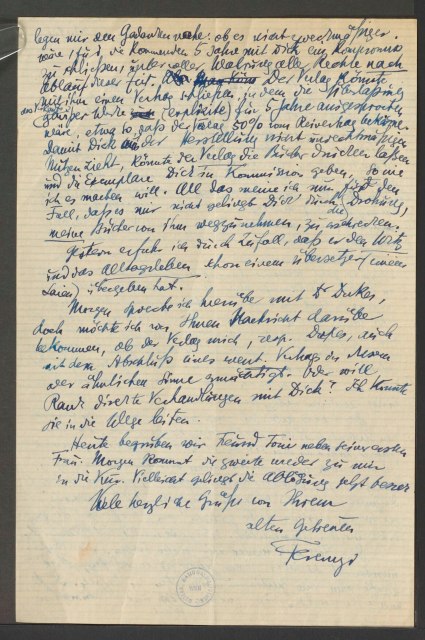 legen mir den Gedanken nahe: ob es nicht zweckmässiger
wäre, für die kommenden 5 Jahre mit Dick ein Kompromiss
zu schliessen, unter voller Wahrung aller Rechte nach
Ablauf dieser Frist. Der Verlag könnte
mit ihm einen Vertrag schliessen, in dem die Überlassung
das Verkaufs
ganzer Werke (explicite) für 5 Jahre ausgesprochen
wäre, etwa so, dass der Verlag 50% vom Reinertrag bekäme.
Damit Dick aus der Herstellung nicht unrechtmässigen
Nutzen zieht, könnte der Verlag die Bücher drucken lassen
und die Exemplare Dick in Kommission geben, so wie
ich es machen will. All das meine ich nur für den
Fall, dass es mir nicht gelingt Dick durch die Drohung,
meine Bücher von ihm wegzunehmen, zu
Gestern erfuhr ich durch Zufall, dass er den Witz
und das Alltagsleben schon einem Übersetzer (einem
Laien) übergeben hat.
Morgen spreche ich hierüber mit Dr Dukes,
doch möchte ich von Ihnen Nachricht darüber
bekommen, ob der Verlag mich, resp. Dukes, auch
mit dem Abschluss eines event. Vertrags in diesem
oder ähnlichen Sinne ermächtigt. Oder will
Rank direkte Verhandlungen mit Dick? Ich könnte
sie in die Wege leiten.
Heute begruben wir Freund Toni neben seiner ersten
Frau. Morgen kommt die zweite wieder zu mir
in die Kur. Vielleicht gelingt die Ablösung jetzt besser
Viele herzliche Grüsse von Ihrem
alten getreuen
Ferenczi